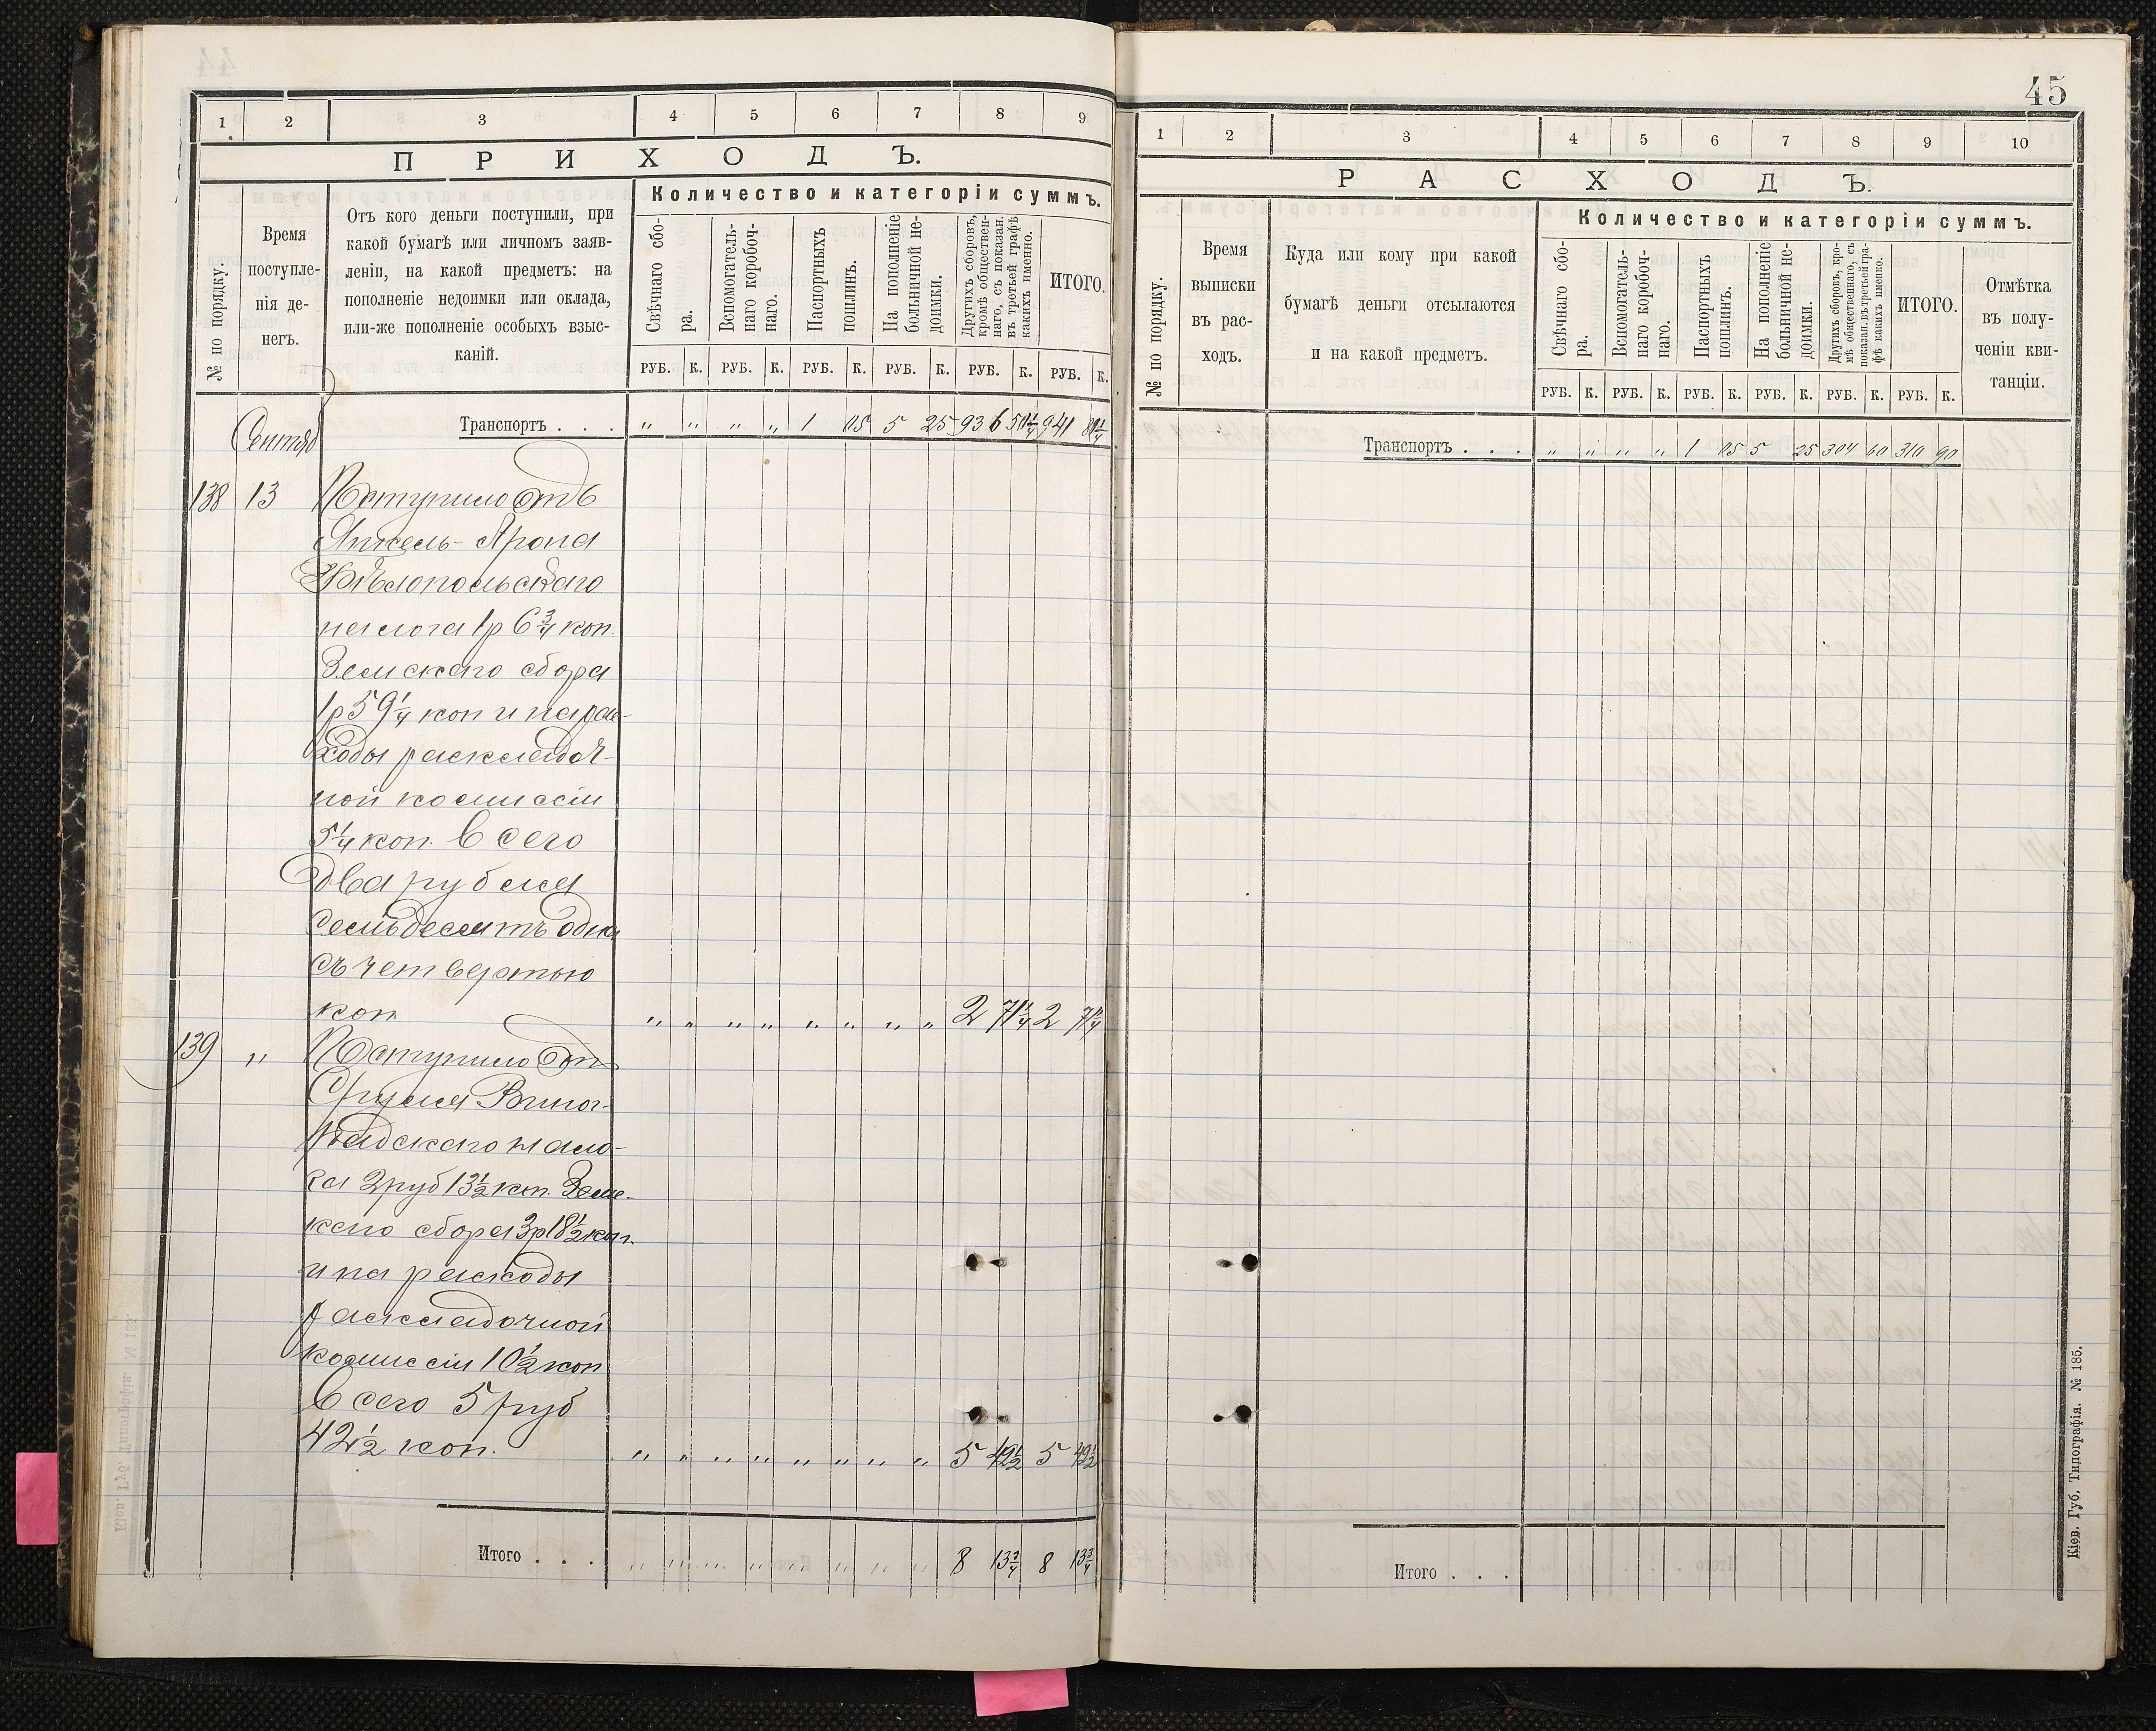 1 2 3 4 5 6 7 8 9
ПРИХОДЪ.
№ по порядку.
Время
поступле-
нія де-
негъ.
Отъ кого деньги поступили, при
какой бумагѣ или личномъ заяв-
леніи, на какой предметъ: на
пополненіе недоимки или оклада,
или-же пополненіе особыхъ взыс-
каній.
Количество и категоріи суммъ.
Свѣчнаго сбо-
ра.
Вспомогатель-
наго коробоч-
наго.
Паспортныхъ
пошлинъ.
На пополненіе
больничной не-
доимки.
Другихъ сборовъ,
кромѣ обществен-
наго, съ показан.
въ третьей графѣ
какихъ именно.
ИТОГО.
РУБ. К. РУБ. К. РУБ. К. РУБ. К. РУБ. К. РУБ. К.
Транспортъ . . . " " " " 1 05 5 25 936 51 1/4 941 81 1/4
Сентяб
138 13 Поступило отъ
Янкель-Арона
Бѣлопольскаго
налога 1р 6 3/4 коп.
Земскаго сбора
1р 59 1/4 коп и на рас-
ходы раскладоч-
ной комиссіи
5 1/4 коп. Всего
два рубля
семьдесятъ одна
съ четвертью
коп " " " " " " " " 2 71 1/4 2 71 1/4
139 " Поступило отъ
Сруля Виног-
радскаго нало-
га 2 руб 13 1/2 коп. Земс-
каго сбора 3р 18 1/2 коп.
и на расходы
раскладочной
комиссіи 10 1/2 коп
Всего 5 руб
42 1/2 коп. " " " " " " " " 5 42 1/2 5 42 1/2
Итого . . . " " " " " " " " 8 13 3/4 8 13 3/4
45
1 2 3 4 5 6 7 8 9 10
РАСХОДЪ.
№ по порядку.
Время
выписки
въ рас-
ходъ.
Куда или кому при какой
бумагѣ деньги отсылаются
и на какой предметъ.
Количество и категоріи суммъ.
Свѣчнаго сбо-
ра.
Вспомогатель-
наго коробоч-
наго.
Паспортныхъ
пошлинъ.
На пополненіе
больничной не-
доимки.
Другихъ сборовъ, кро-
мѣ общественнаго, съ
показан. въ третьей гра-
фѣ какихъ именно.
ИТОГО.
Отмѣтка
въ полу-
ченіи кви-
танціи.
РУБ. К. РУБ. К. РУБ. К. РУБ. К. РУБ. К. РУБ. К.
Транспортъ . . . " " " " 1 05 5 25 304 60 310 90
Итого . . .
Кіев. Губ. Типографія. № 185.